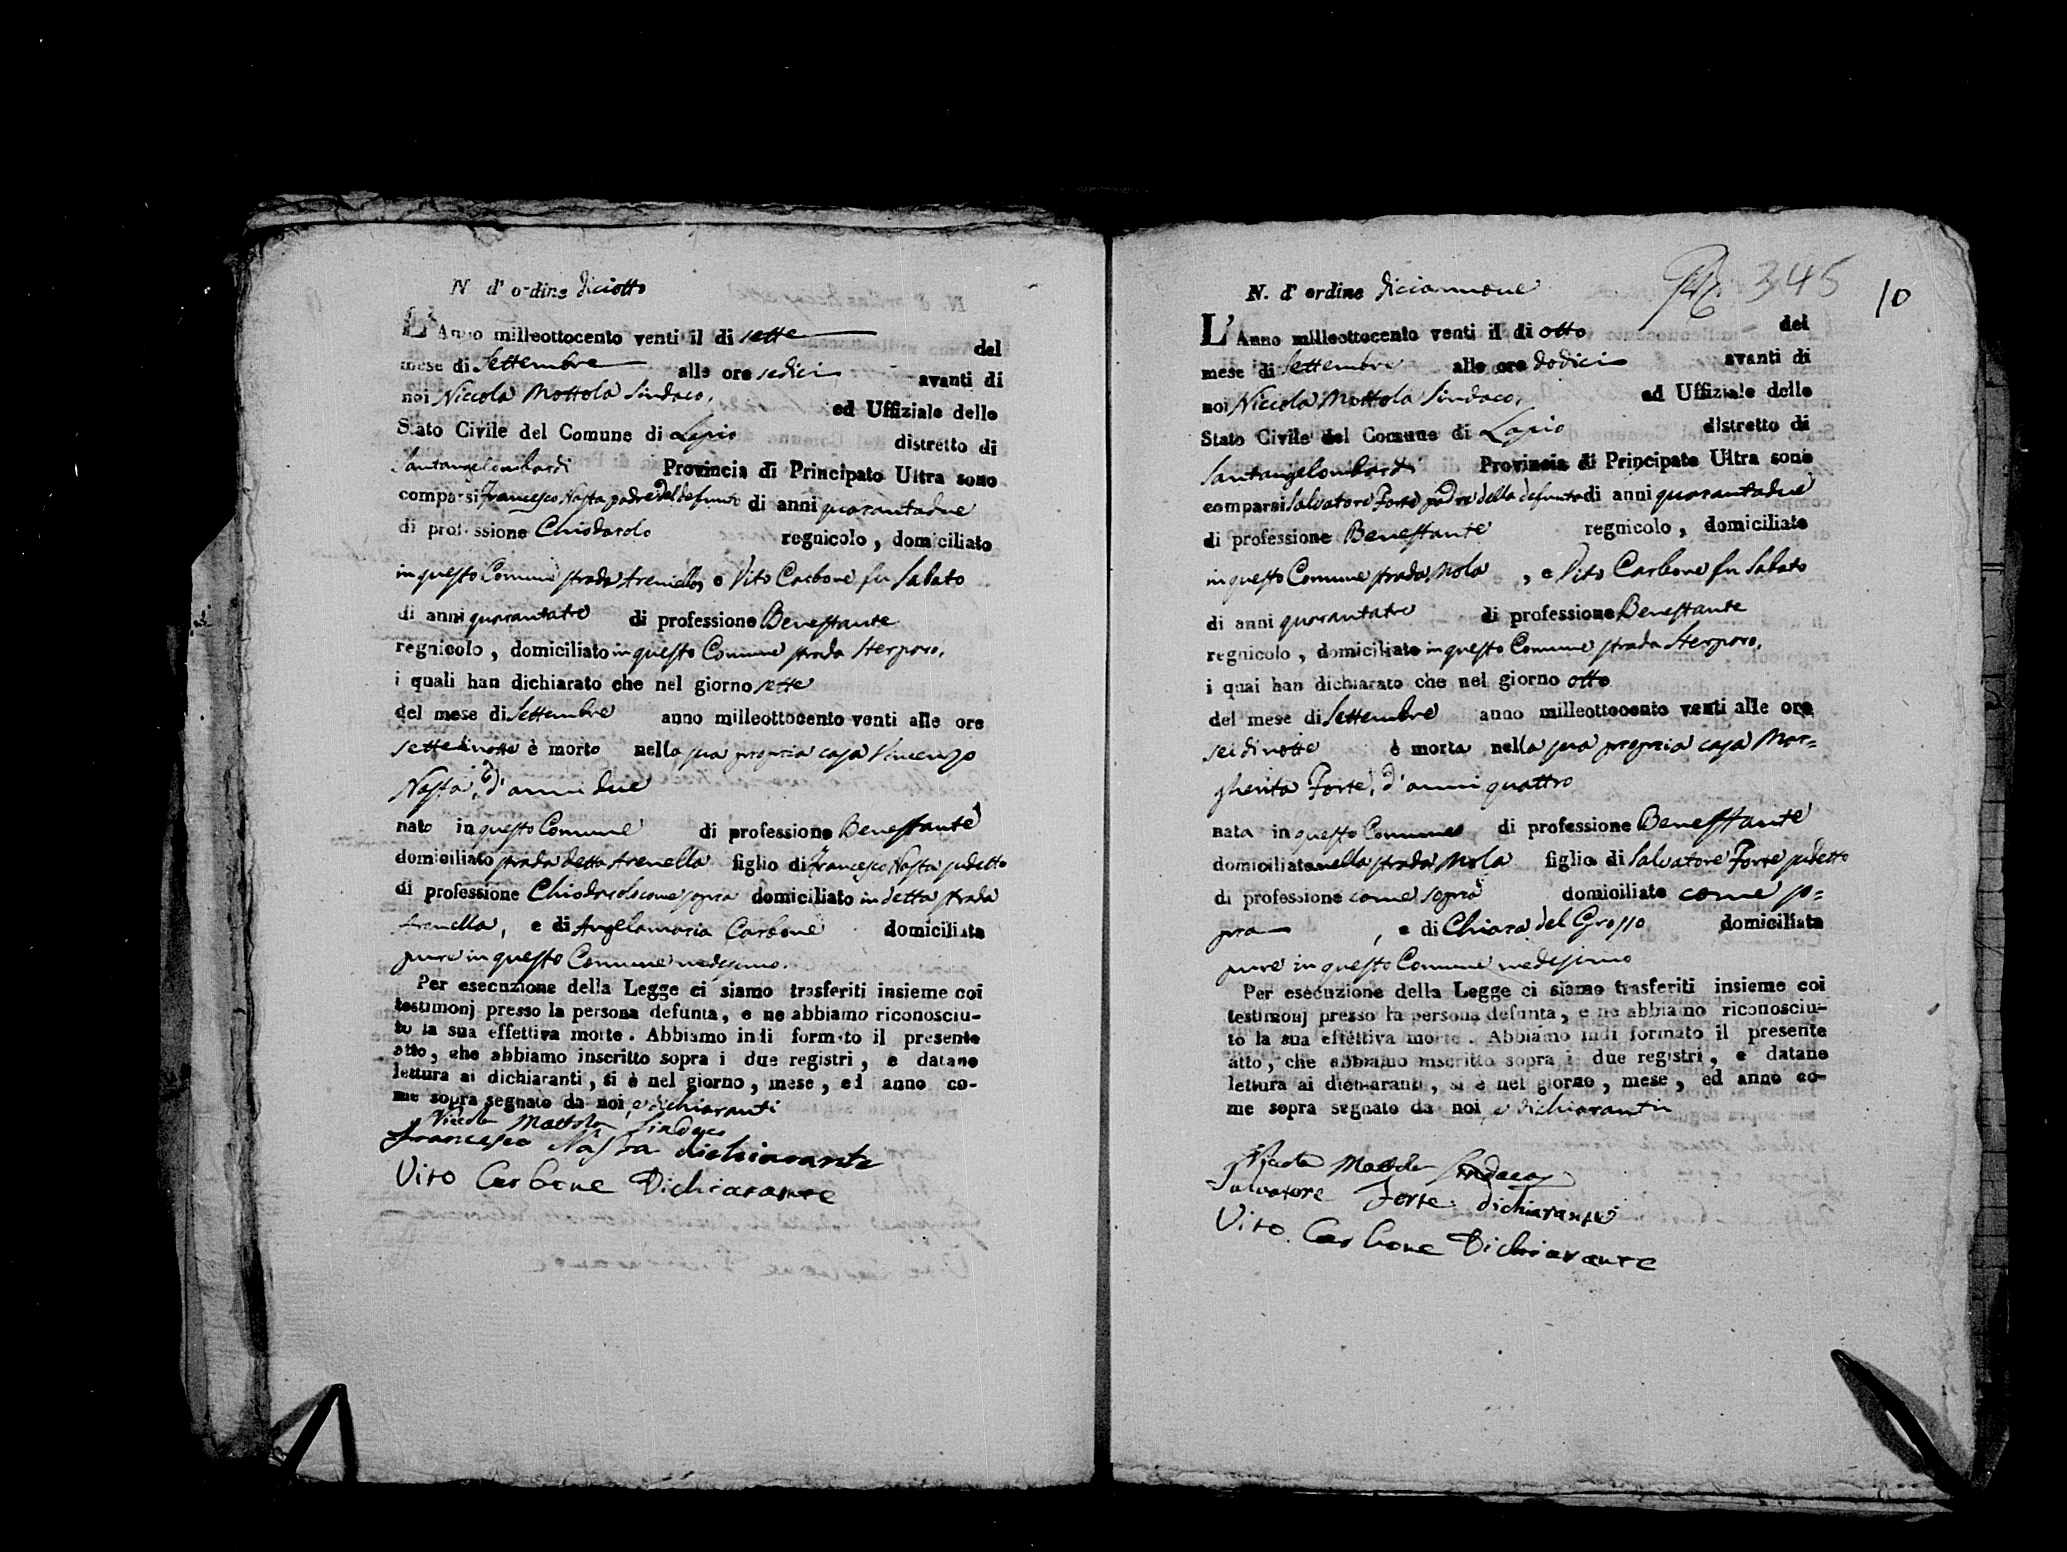 N. d' ordine diciotto
L'Anno milleottocento venti il di sette del
mese di Settembre alle ore sedici avanti di
noi Niccola Mottola Sindaco, ed Uffiziale dello
Stato Civile del Comune di Lapio distretto di
Santangelombardi Provincia di Principato Ultra sono
comparsi Francesco Nasta padre del defunto di anni quarantadue
di professione Chiodarolo regnicolo, domiciliato
in questo Comune strada Arenella, e Vito Carbone fu Sabato
di anni quarantatre di professione Benestante
regnicolo, domiciliato in questo Comune strada Sterparo,
i quali han dichiarato che nel giorno sette
del mese di Settembre anno milleottocento venti alle ore
sette di notte è morto nella sua propria casa Vincenzo
Nasta, d'anni due
nato in questo Comune di professione Benestante
domiciliato strada detta Arenella figlio di Francesco Nasta sudetto
di professione Chiodarolo come sopra domiciliato in detta strada
Arenella, e di Angelamaria Carbone domiciliata
pure in questo Comune medesimo.
Per esecuzione della Legge ci siamo trasferiti insieme coi
testimonj presso la persona defunta, e ne abbiamo riconosciu-
to la sua effettiva morte. Abbiamo indi formato il presente
atto, che abbiamo inscritto sopra i due registri, e datane
lettura ai dichiaranti, si è nel giorno, mese, ed anno co-
me sopra segnato da noi, e dichiaranti
Nicola Mottola Sindaco
Francesco Nasta dichiarante
Vito Carbone Dichiarante
345
10
N. d' ordine diciannove
L'Anno milleottocento venti il di otto del
mese di Settembre alle ore dodici avanti di
noi Niccola Mottola Sindaco, ed Uffiziale dello
Stato Civile del Comune di Lapio distretto di
Santangelombardi Provincia di Principato Ultra sono
comparsi Salvatore Forte padre della defunta di anni quarantadue
di professione Benestante regnicolo, domiciliato
in questo Comune strada Mola, e Vito Carbone fu Sabato
di anni quarantatre di professione Benestante
regnicolo, domiciliato in questo Comune strada Sterparo,
i quai han dichiarato che nel giorno otto
del mese di Settembre anno milleottocento venti alle ore
sei di notte è morta nella sua propria casa Mar=
gherita Forte, d'anni quattro
nata in questo Comune di professione Benestante
domiciliata nella strada Mola figlia di Salvatore Forte sudetto
di professione come sopra domiciliato come so=
pra, e di Chiara del Grosso domiciliata
pure in questo Comune medesimo
Per esecuzione della Legge ci siamo trasferiti insieme coi
testimonj presso la persona defunta, e ne abbiamo riconosciu-
to la sua effettiva morte. Abbiamo indi formato il presente
atto, che abbiamo inscritto sopra i due registri, e datane
lettura ai dichiaranti, si è nel giorno, mese, ed anno co-
me sopra segnato da noi e dichiaranti
Nicola Mottola Sindaco
Salvatore Forte dichiarante
Vito Carbone Dichiarante